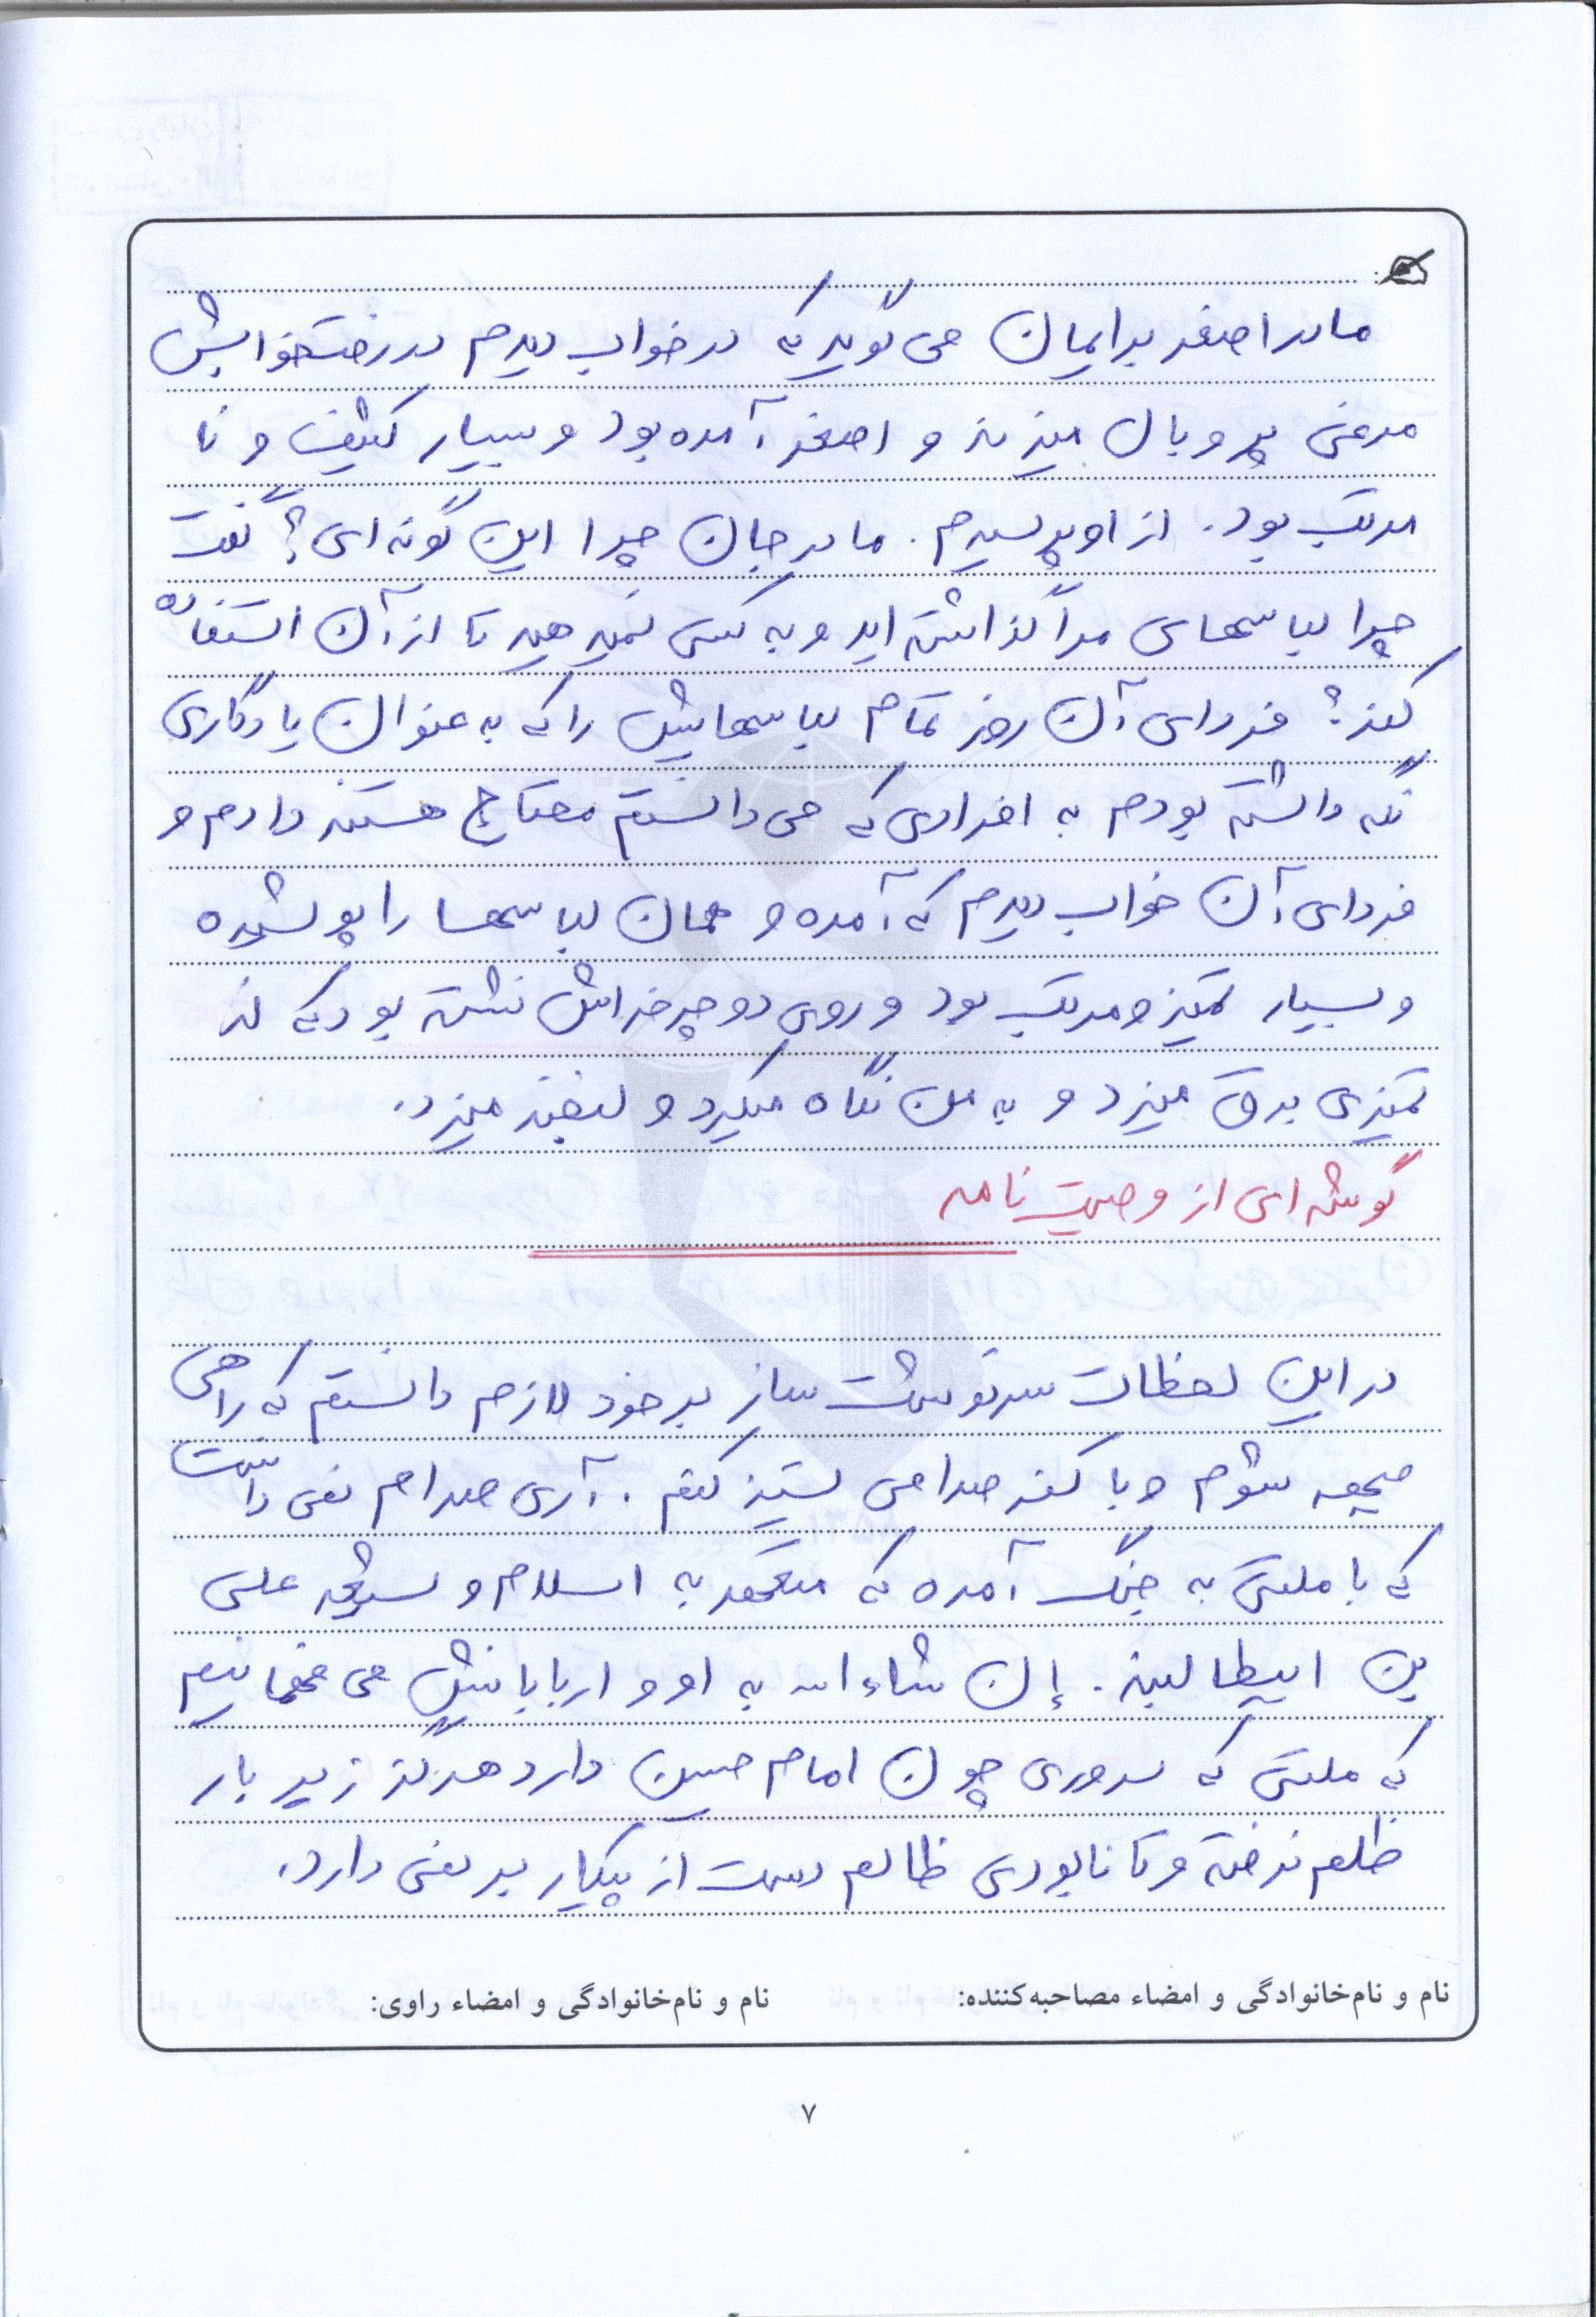 مادر اصغر برایمان می گوید که در خواب دیدم در رختخوابش
مرغی پر و بال میزند و اصغر آمده بود و بسیار کثیف و نا
مرتب بود. از او پرسیدم. مادر جان چرا این گونه ای؟ گفت
چرا لباسهای مرا گذاشته اید و به کسی نمیدهید تا از آن استفاده
کند؟ فردای آن روز تمام لباسهایش را که به عنوان یادگاری
نگه داشته بودم به افرادی که می دانستم محتاج هستند دادم و
فردای آن خواب دیدم که آمده و همان لباسها را پوشیده
و بسیار تمیز و مرتب بود و روی دوچرخه اش نشسته بود که از
تمیزی برق میزد و به من نگاه میکرد و لبخند میزد.
گوشه ای از وصیت نامه
در این لحظات سرنوشت ساز بر خود لازم دانستم که راهی
جبهه شوم و با کفر صدامی ستیز کنم. آری صدام نمی دانست
که با ملتی به جنگ آمده که متعهد به اسلام و شیعه علی
بن ابیطالبند. إن شاء الله به او و اربابانش می فهمانیم
که ملتی که سروری چون امام حسین دارد هرگز زیر بار
ظلم نرفته و تا نابودی ظالم دست از پیکار بر نمی دارد.
نام و نام‌خانوادگی و امضاء مصاحبه‌کننده: نام و نام‌خانوادگی و امضاء راوی:
۷